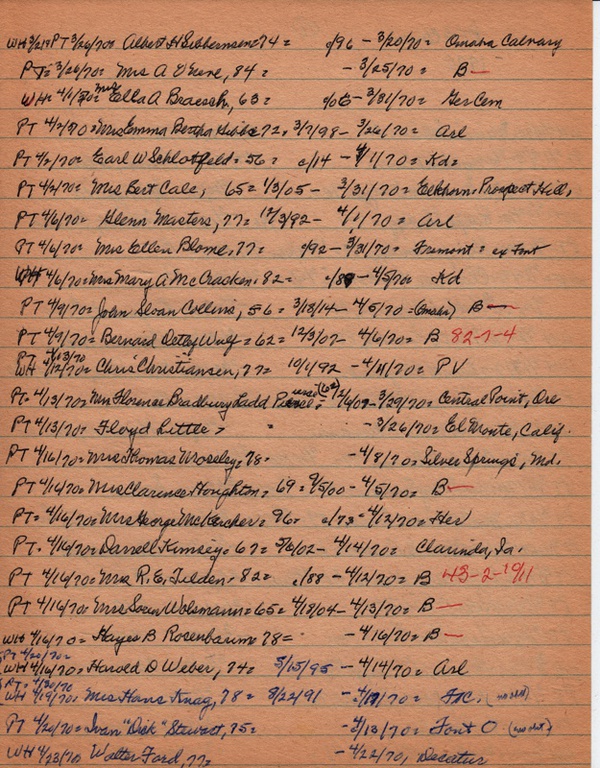 WH 3/21 PT 3/26/70= Albert H Sibbernsen= 74= c/96 - 3/20/70= Omaha Calvary
PT= 3/26/70= Mrs A O'Stene, 84= - 3/25/70= B -
WH= 4/1/70= Mrs Ella A Braesch, 63= c/06 - 3/31/70= Ger Cem
PT 4/2/70= Mrs Emma Bertha 72, 3/7/98 - 3/26/70= Arl
PT 4/2/70= Earl W Schlotfeld= 56= c/14 - 4/1/70= Kd=
PT 4/2/70= Mrs Bert Cale, 65= 1/3/05 - 3/31/70= Elkhorn= Prospect Hill,
PT 4/6/70= Glenn Masters, 77= 12/3/92 - 4/1/70= Arl
PT 4/6/70= Mrs Ellen Blome, 77= c/92 - 3/31/70= Fremont= ex Font
WH 4/6/70= Mrs Mary A McCracken= 82= c/88 - 4/5/70= Kd
PT 4/9/70= John Sloan Collins, 56= 3/18/14 - 4/5/70 =(Omaha) B -
PT 4/9/70= Bernard Detlef Wulf= 62= 12/3/07 - 4/6/70= B 82-7-4
PT= 4/13/70
WH 4/12/70= Chris Christiansen, 77= 10/1/92 - 4/11/70= PV
PT= 4/13/70= Mrs Florence Bradbury Ladd (62) 2/6/07 - 3/29/70= Central Point, Ore
PT 4/13/70= Floyd Little= - 3/26/70= El Monte, Calif.
PT 4/16/70= Mrs Thomas Moseley= 78= - 4/8/70= Silver Springs, Md.
PT 4/16/70= Mrs Clarence Houghton= 69= 9/5/00 - 4/5/70= B -
PT= 4/16/70= Mrs George McKercher= 96= c/73= 4/12/70= Her
PT= 4/16/70= Darrell Kimsey= 67= 5/6/02 - 4/14/70= Clarinda, Ia.
PT 4/16/70= Mrs R. E. Tilden= 82= c/88 - 4/12/70= B 43-2-19/11
PT 4/16/70= Mrs Soren Wolsmann= 65= 4/18/04 - 4/13/70= B -
WH 4/16/70= Hayes B Rosenbaum= 78= - 4/16/70= B -
PT 4/20/70=
WH 4/16/70= Harold D Weber, 74= 5/15/95 - 4/14/70= Arl
PT= 4/30/70
WH 4/19/70= Mrs Hans Knag, 78= 8/22/91 - 4/17/70= FtC. (no obit)
PT 4/20/70= Ivan "Dick" Stewart, 75= - 4/13/70= Font O (no obit)
WH 4/23/70 Walter Ford, 77= - 4/22/70, Decatur